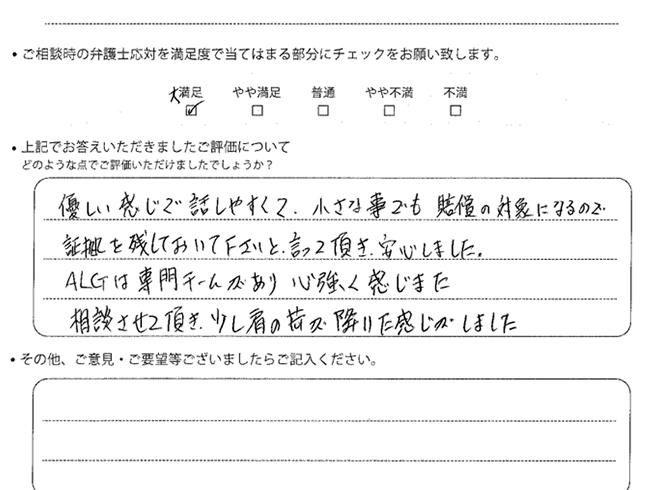 ・ご相談時の弁護士応対を満足度で当てはまる部分にチェックをお願い致します。
大満足 やや満足 普通 やや不満 不満
☑ □ □ □ □
・上記でお答えいただきましたご評価について
どのような点でご評価いただけましたでしょうか?
優しい感じで話しやすくて、小さな事でも 賠償の対象になるので
証拠を残しておいて下さいと、言って頂き、安心しました。
ALGは専門チームがあり 心強く感じまた
相談させて頂き、少し肩の荷が降りた感じがしました
・その他、ご意見・ご要望等ございましたらご記入ください。